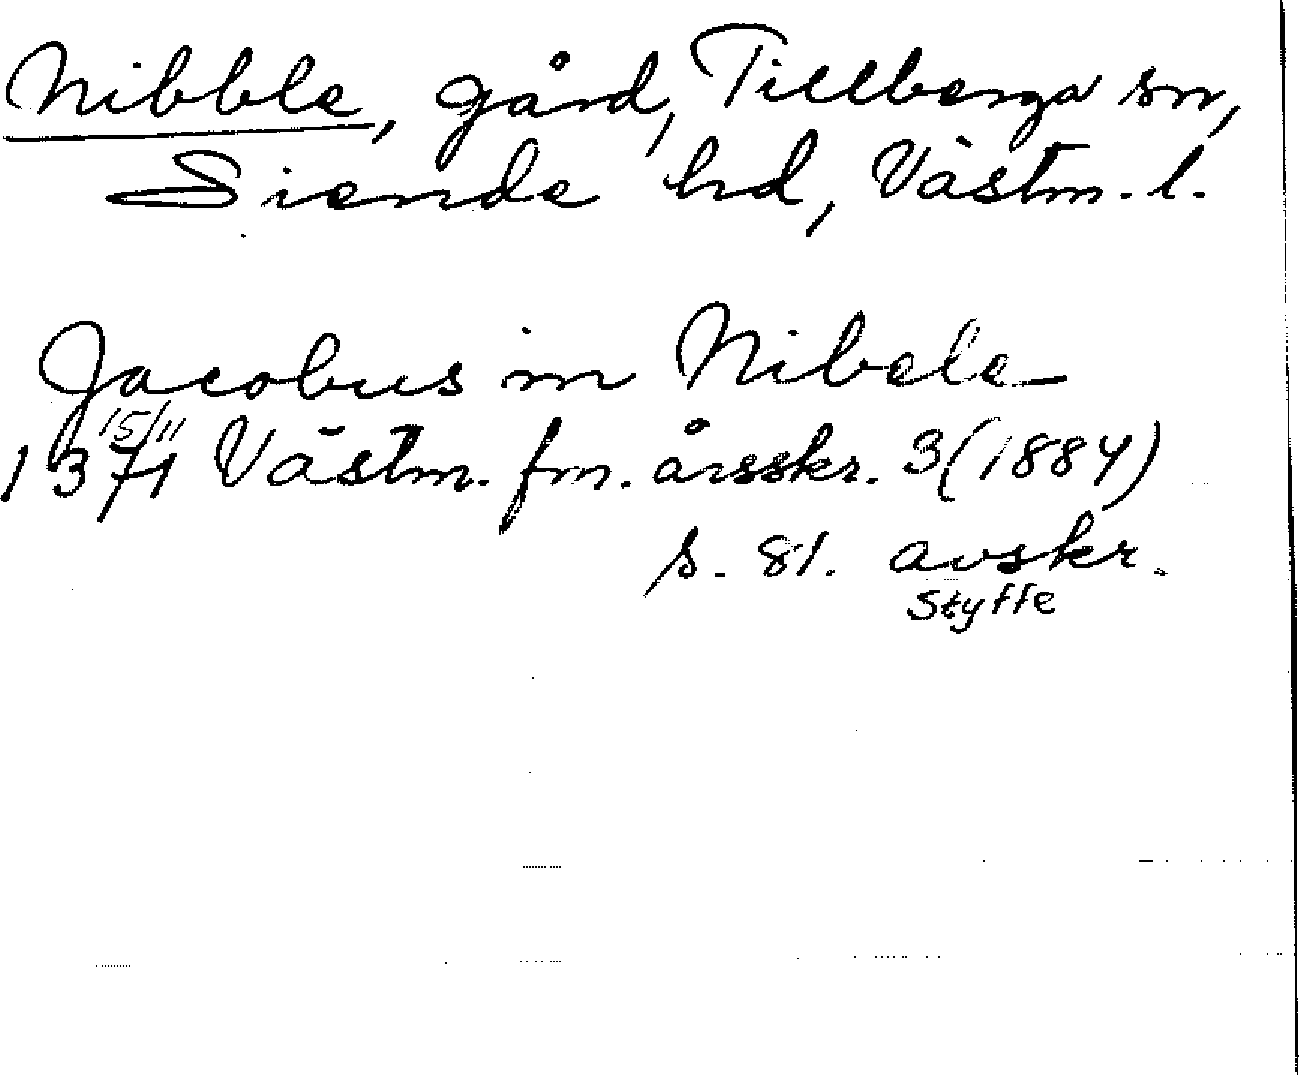 Nibble, gård, Tillberga sn,
Siende hd, Västm. l.
Jacobus in Nibele
15/11
1371 Västm. fm. årsskr. 3 (1884)
s. 81. avskr.
Styffe